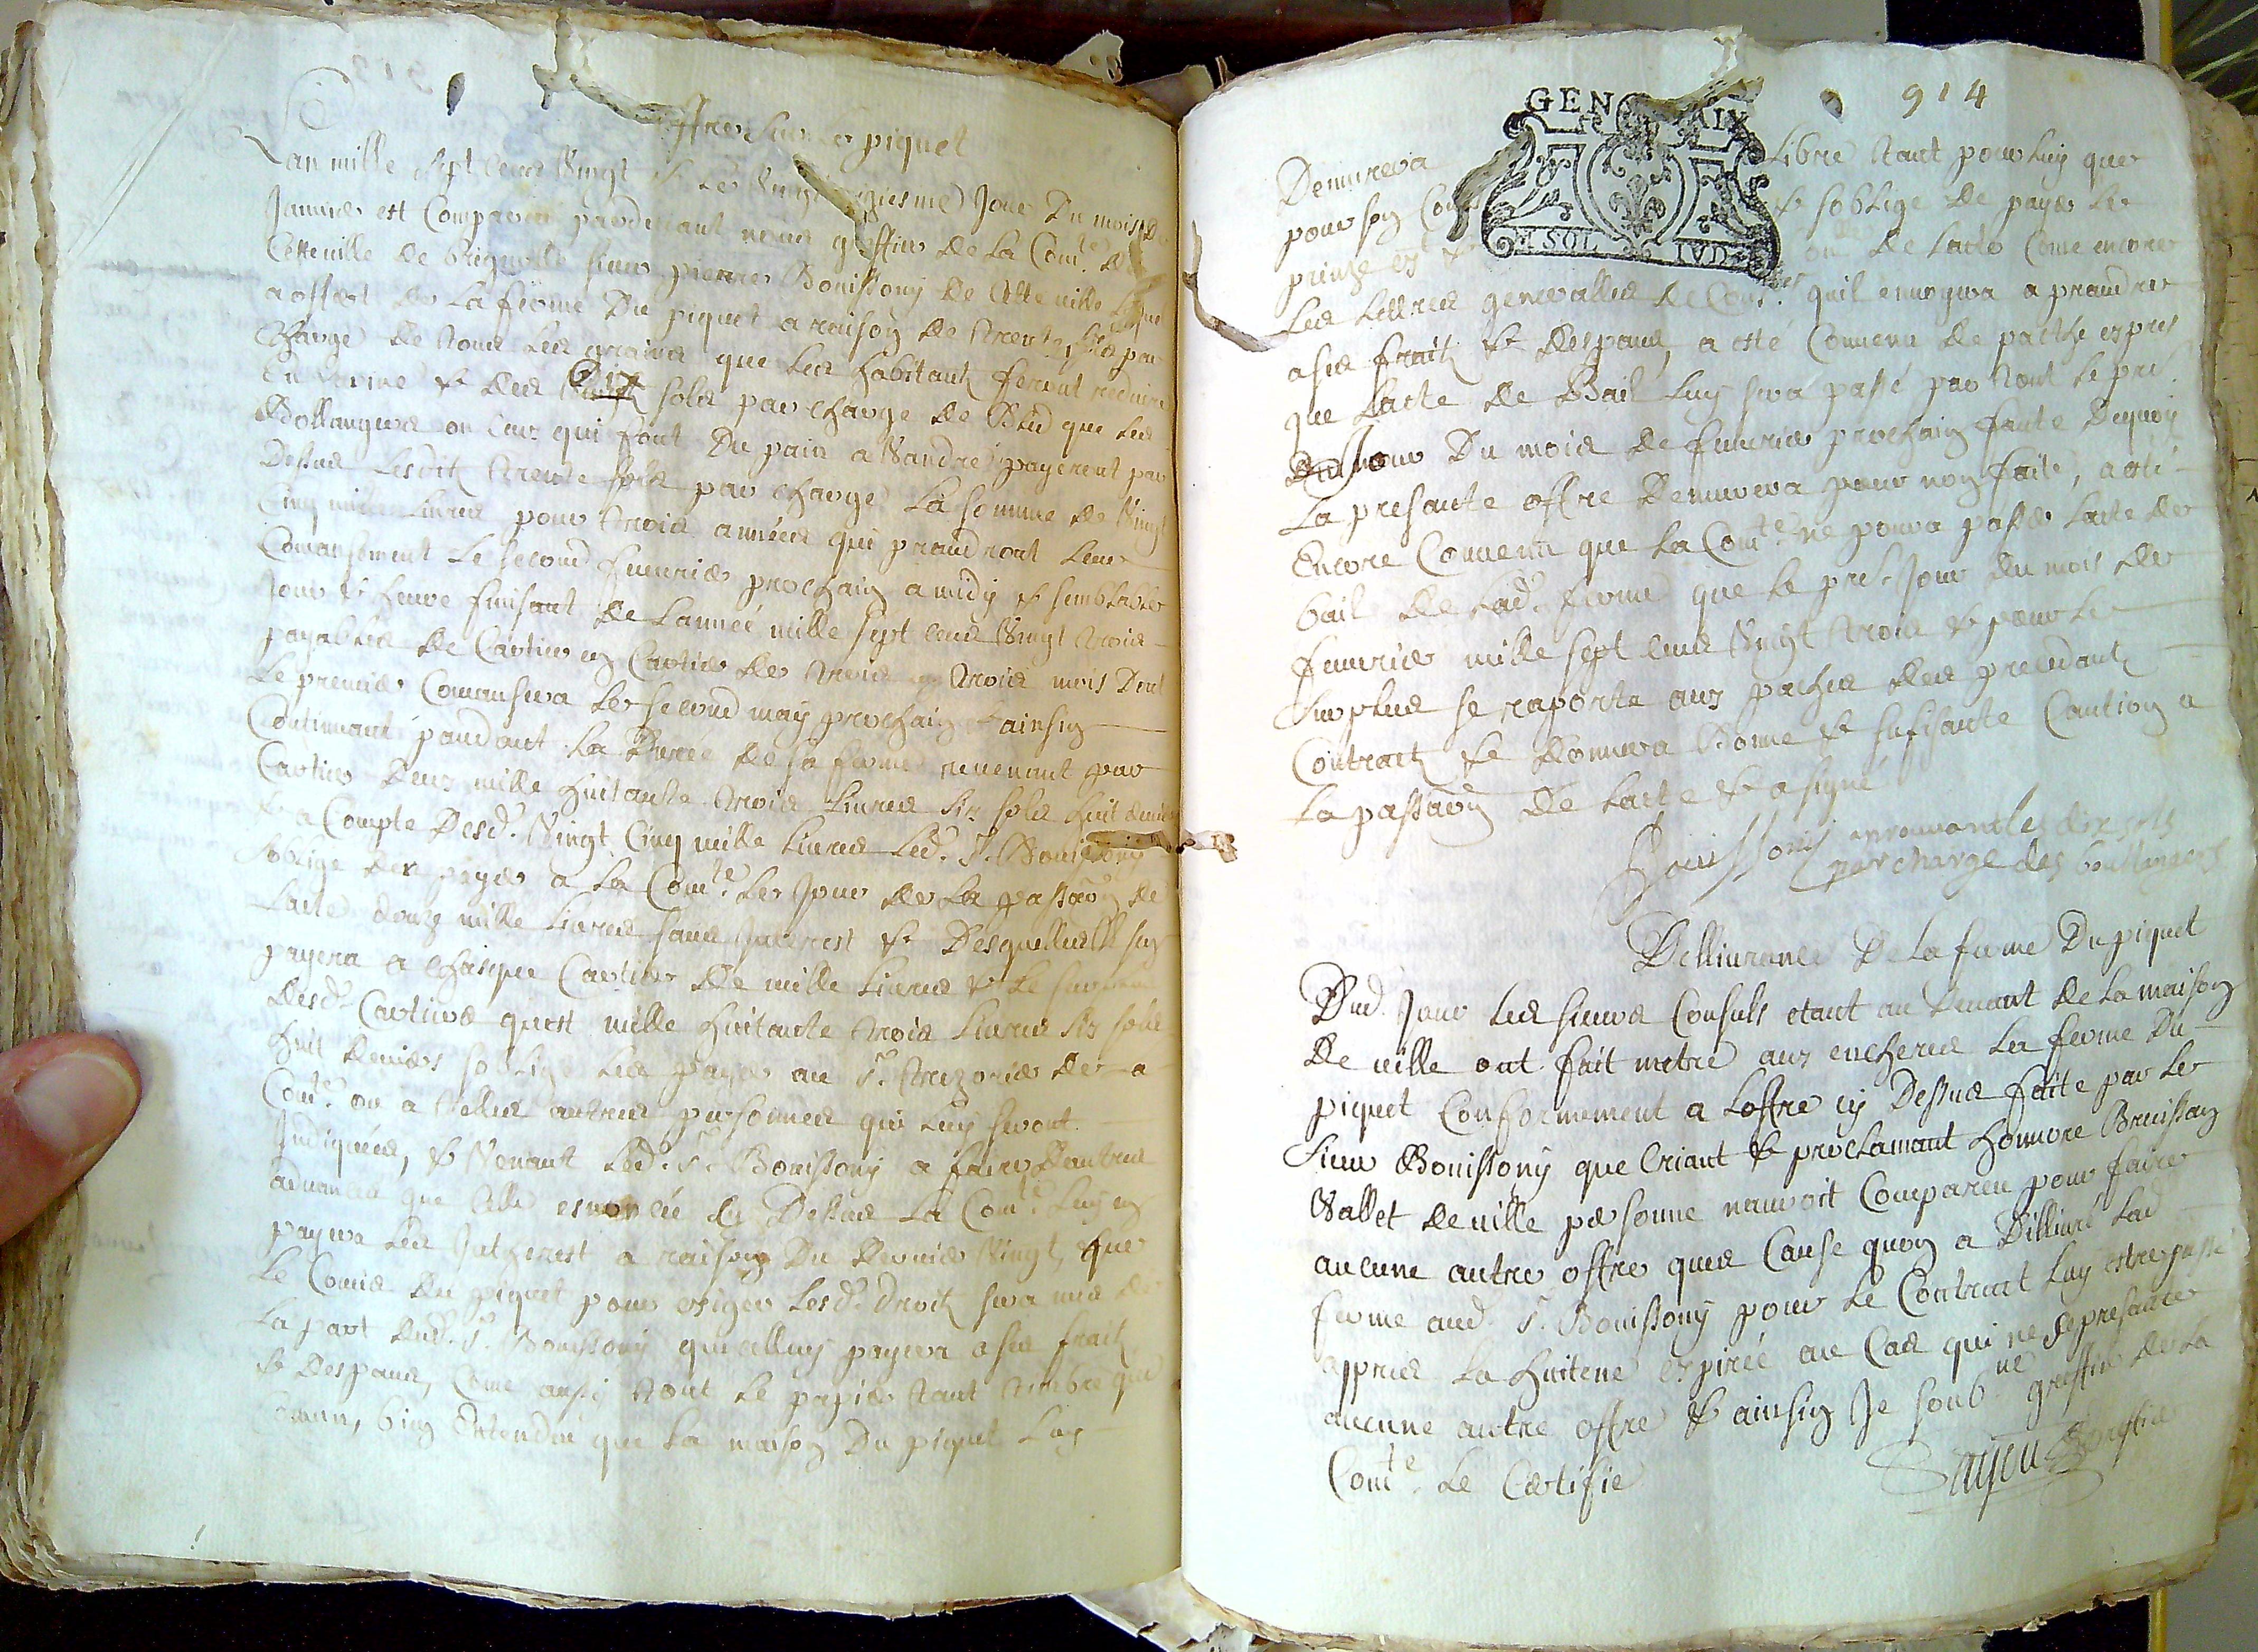 Offre sur le piquet
Lan mille sept cens vingt & le vingt jour du mois de
Janvier est comparu pardevant nous greffier de la Com.te de
Cette ville de Brignolle sieur pierre Bouissony de cette ville lequel
a offert de la ferme du piquet a raison de trente sols par
charge de tous les grains que les habitants feront reduire
En farine & des Dix sols par charge de Bled que les
Bollangers ou ceux qui font du pain a vandre payeront par
Dessus lesdit trente sols par charge La somme de vingt
Cinq mille Livres pour trois années qui prandront leur
Comansement le second fevrier prochain a midy & semblable
Jour & heure finisant de lannée mille sept cens vingt trois
payables de Cartier en Cartier de trois en trois mois Dont
Le premier Comansera le second may prochain & ainsin
Continuant pandant la Durée de sa ferme revenant par
Cartier deux mille huitante trois Livres six sols huit deniers
& a Compte desd. vingt Cinq mille Livres led. s.r Bouissony
soblige de payer a la Com.te le jour de la passaõn de
Lacte douze mille Livres sans Interest & Desquelles il sen
payera a chasque Cartier de mille Livres & le surplus
desd. Cartiers quest mille huitante trois Livres six sols
huit deniers soblige les payer au s.r trezorier de a
Com.te ou a telles autres personnes qui luy seront
Indiquées, & venant led. s.r Bouissony a faire dautres
advances que celle enoncée cy Dessus La Com.te luy en
payera les Intherest a raison du denier vingt, que
Le Comis du piquet pour exiger lesd. droit sera mis de
La part dud. s.r Bouissony quicelluy payera a ses frait
& Despans, Come aussy tout le papier tant timbré que
Comun, bien Entendu que la maison du piquet luy
914
GEN AIX
SOL IVD
Demurera Libre tant pour luy que
pour son Comis & soblige de payer le
de lacte Come encore
Les Lettres generalles de Con.es quil envoyera a prandre
a ses frait & despans, a esté Convenu de pache expres
que lacte de Bail luy sera passé par tout le pr.é
Jour du mois de fevrier prochain faute dequoy
La presante offre demurera pour non faite, a esté
Encore Convenu que la Com.te ne poura passer lacte de
bail de lad. ferme que le pr.e Jour du mois de
fevrier mille sept cens vingt trois & pour le
surplus se raporte aux paches des precedants
Contrait & donnera Bonne & sufisante Caution a
La passaõn de lacte & a signé
Bouissony aprouvant les dix sols
par charge des boullangers
Dellivrance De la ferme Du piquet
Dud. Jour les sieurs Consuls etant au Devant de la maison
De ville ont fait metre aux encheres La ferme du
piquet Conformement a loffre cy Dessus faite par le
Sieur Bouissony que Criant & proclamant honnore Brouisson
Vallet de ville personne nauroit Comparu pour faire
aucune autre offre ques Cause quon a Dellivré lad
ferme aud. s.r Bouissony pour le Contrat luy estre passé
appres La huitene expirée au Cas qui ne se presante
aucune autre offre & ainsin Je soub.ne greffier de la
Com.te Le Certifie
greffier